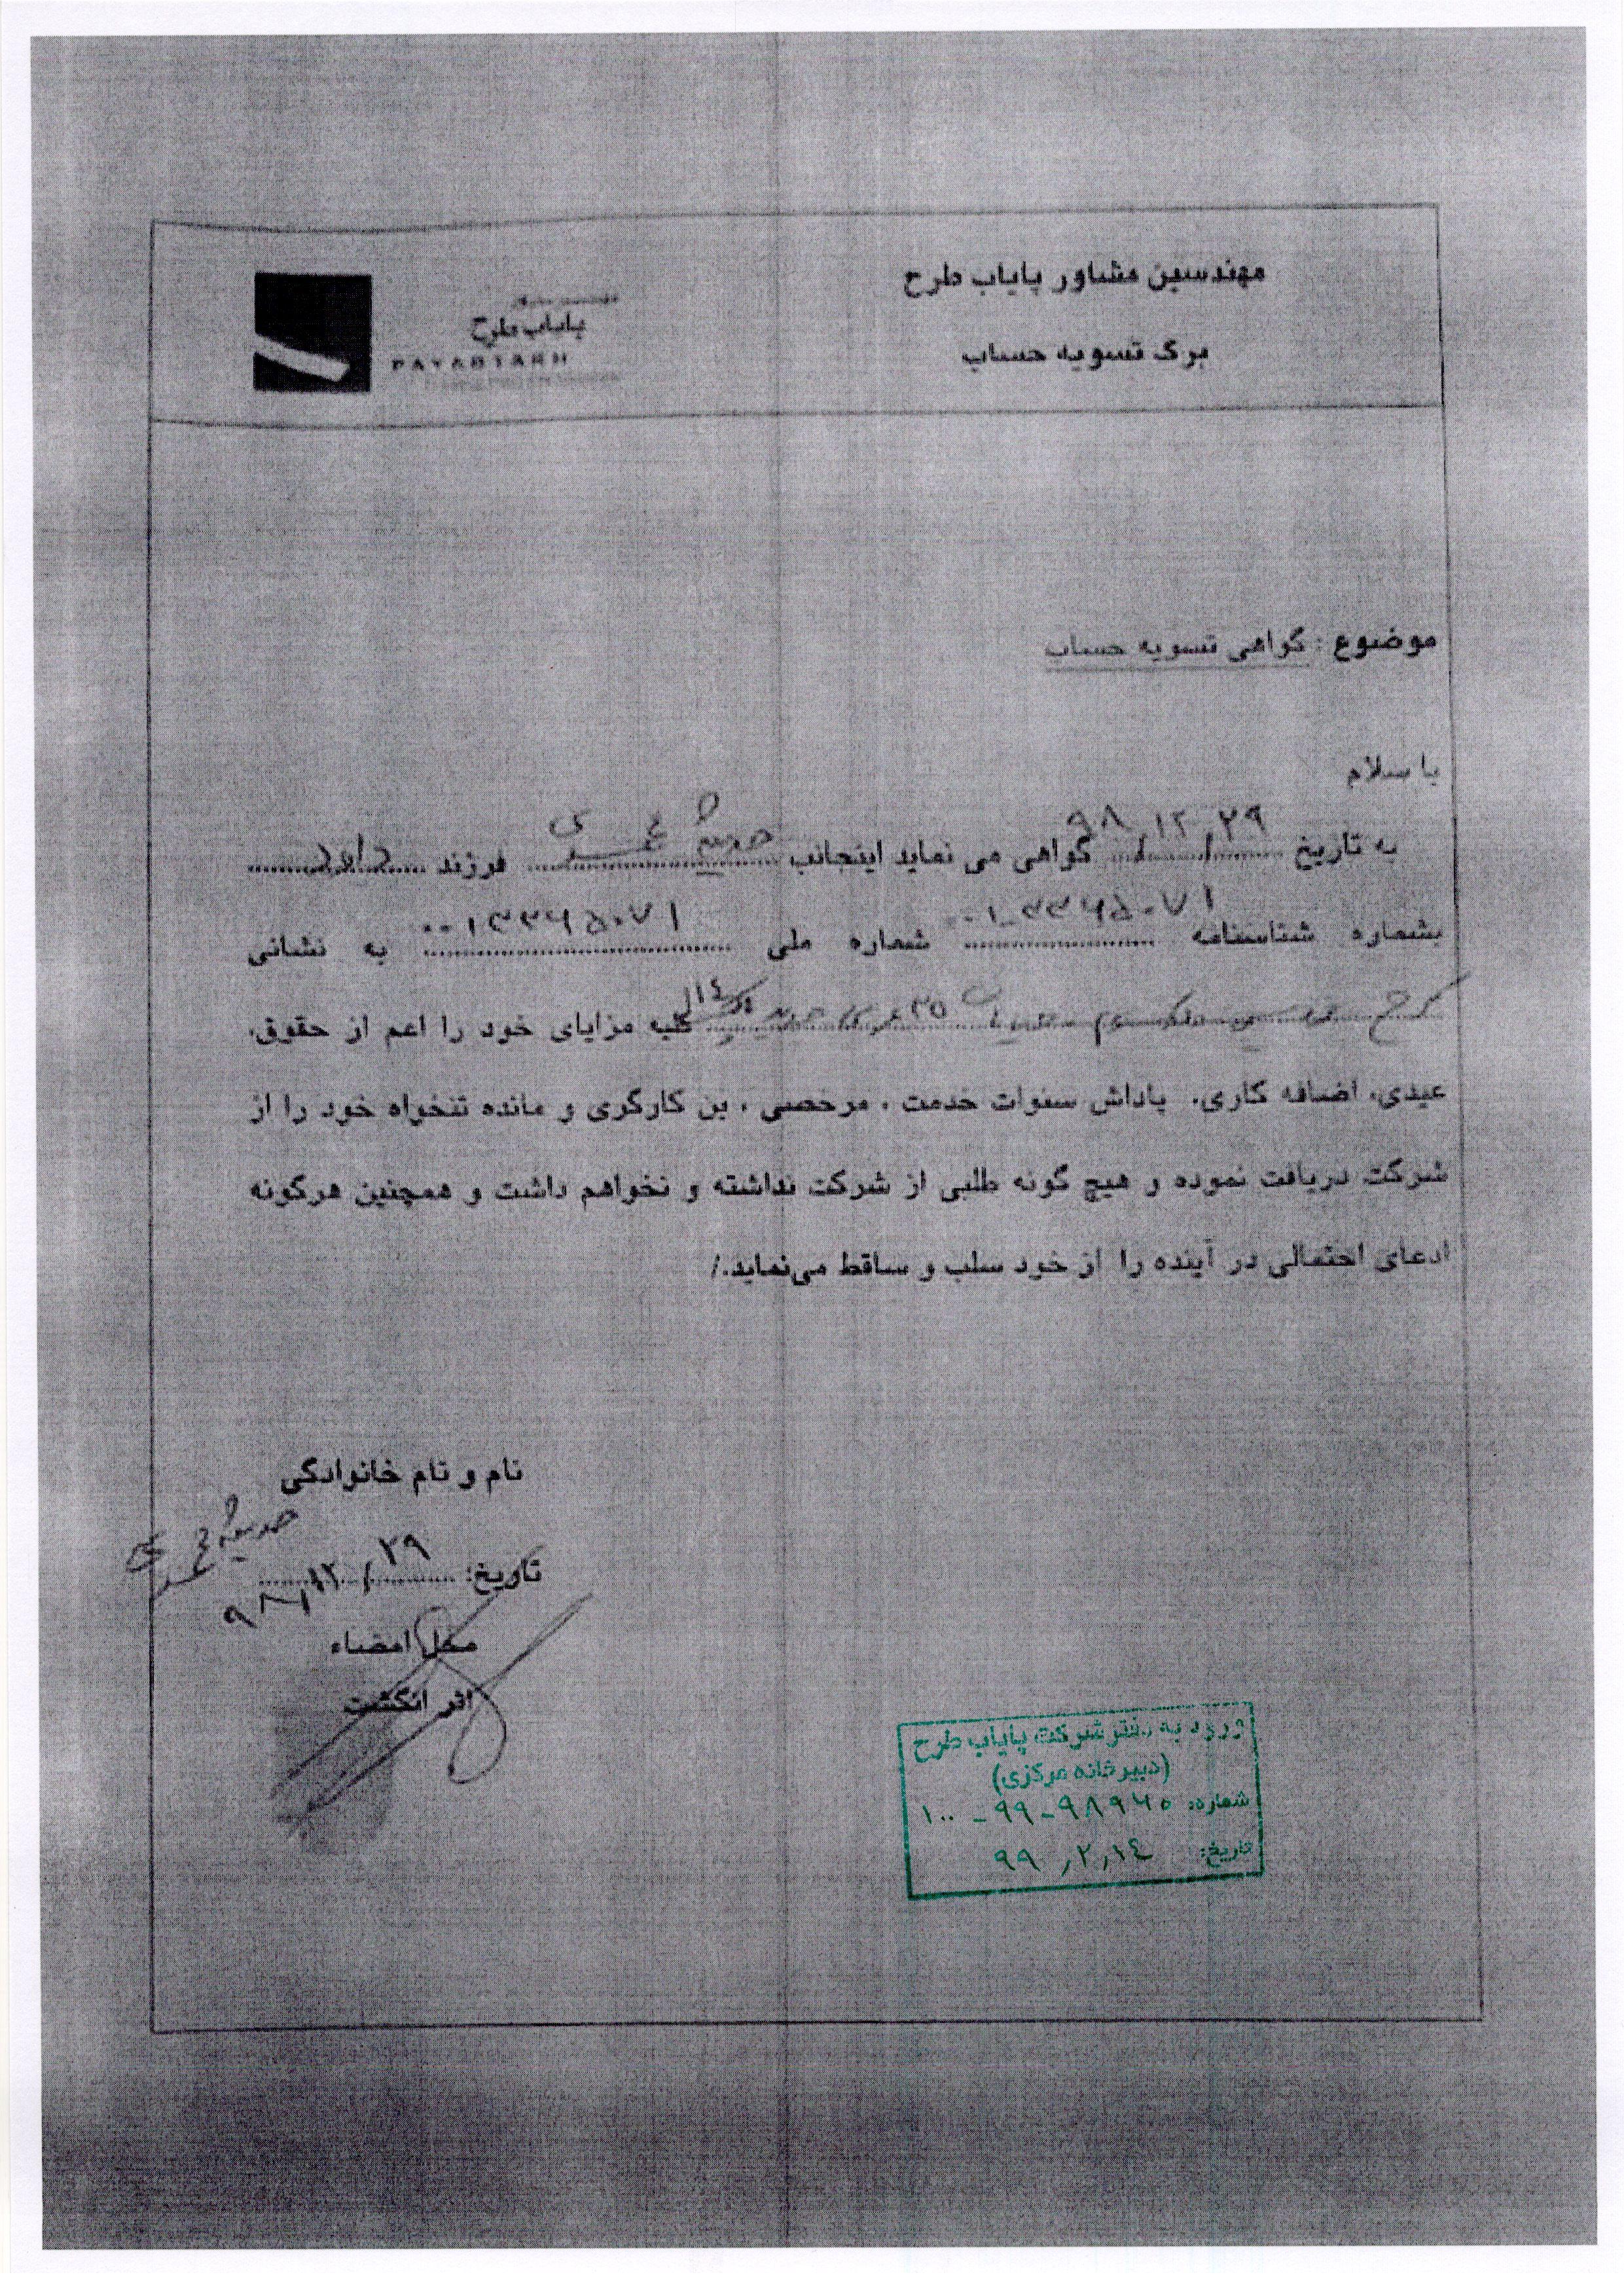 مهندسین مشاور پایاب طرح
برگ تسویه حساب
پایاب طرح
PAYABTARH
موضوع : گواهی تسویه حساب
با سلام
به تاریخ ۹۸/۱۲/۲۹ گواهی می نماید اینجانب فرزند
بشماره شناسنامه ۰۰۱۳۳۶۵۰۷۱ شماره ملی ۰۰۱۳۳۶۵۰۷۱ به نشانی
کرج ۳۵ ۱۴ کلیه مزایای خود را اعم از حقوق،
عیدی، اضافه کاری، پاداش سنوات خدمت ، مرخصی ، بن کارگری و مانده تنخواه خود را از
شرکت دریافت نموده و هیچ گونه طلبی از شرکت نداشته و نخواهم داشت و همچنین هرگونه
ادعای احتمالی در آینده را از خود سلب و ساقط می‌نماید./
نام و نام خانوادگی
تاریخ: ۹۸/۱۲/۲۹
محل امضاء
اثر انگشت
ورود به دفتر شرکت پایاب طرح
(دبیرخانه مرکزی)
شماره: ۱۰۰-۹۹-۹۸۹۶۵
تاریخ: ۹۹/۲/۱۴